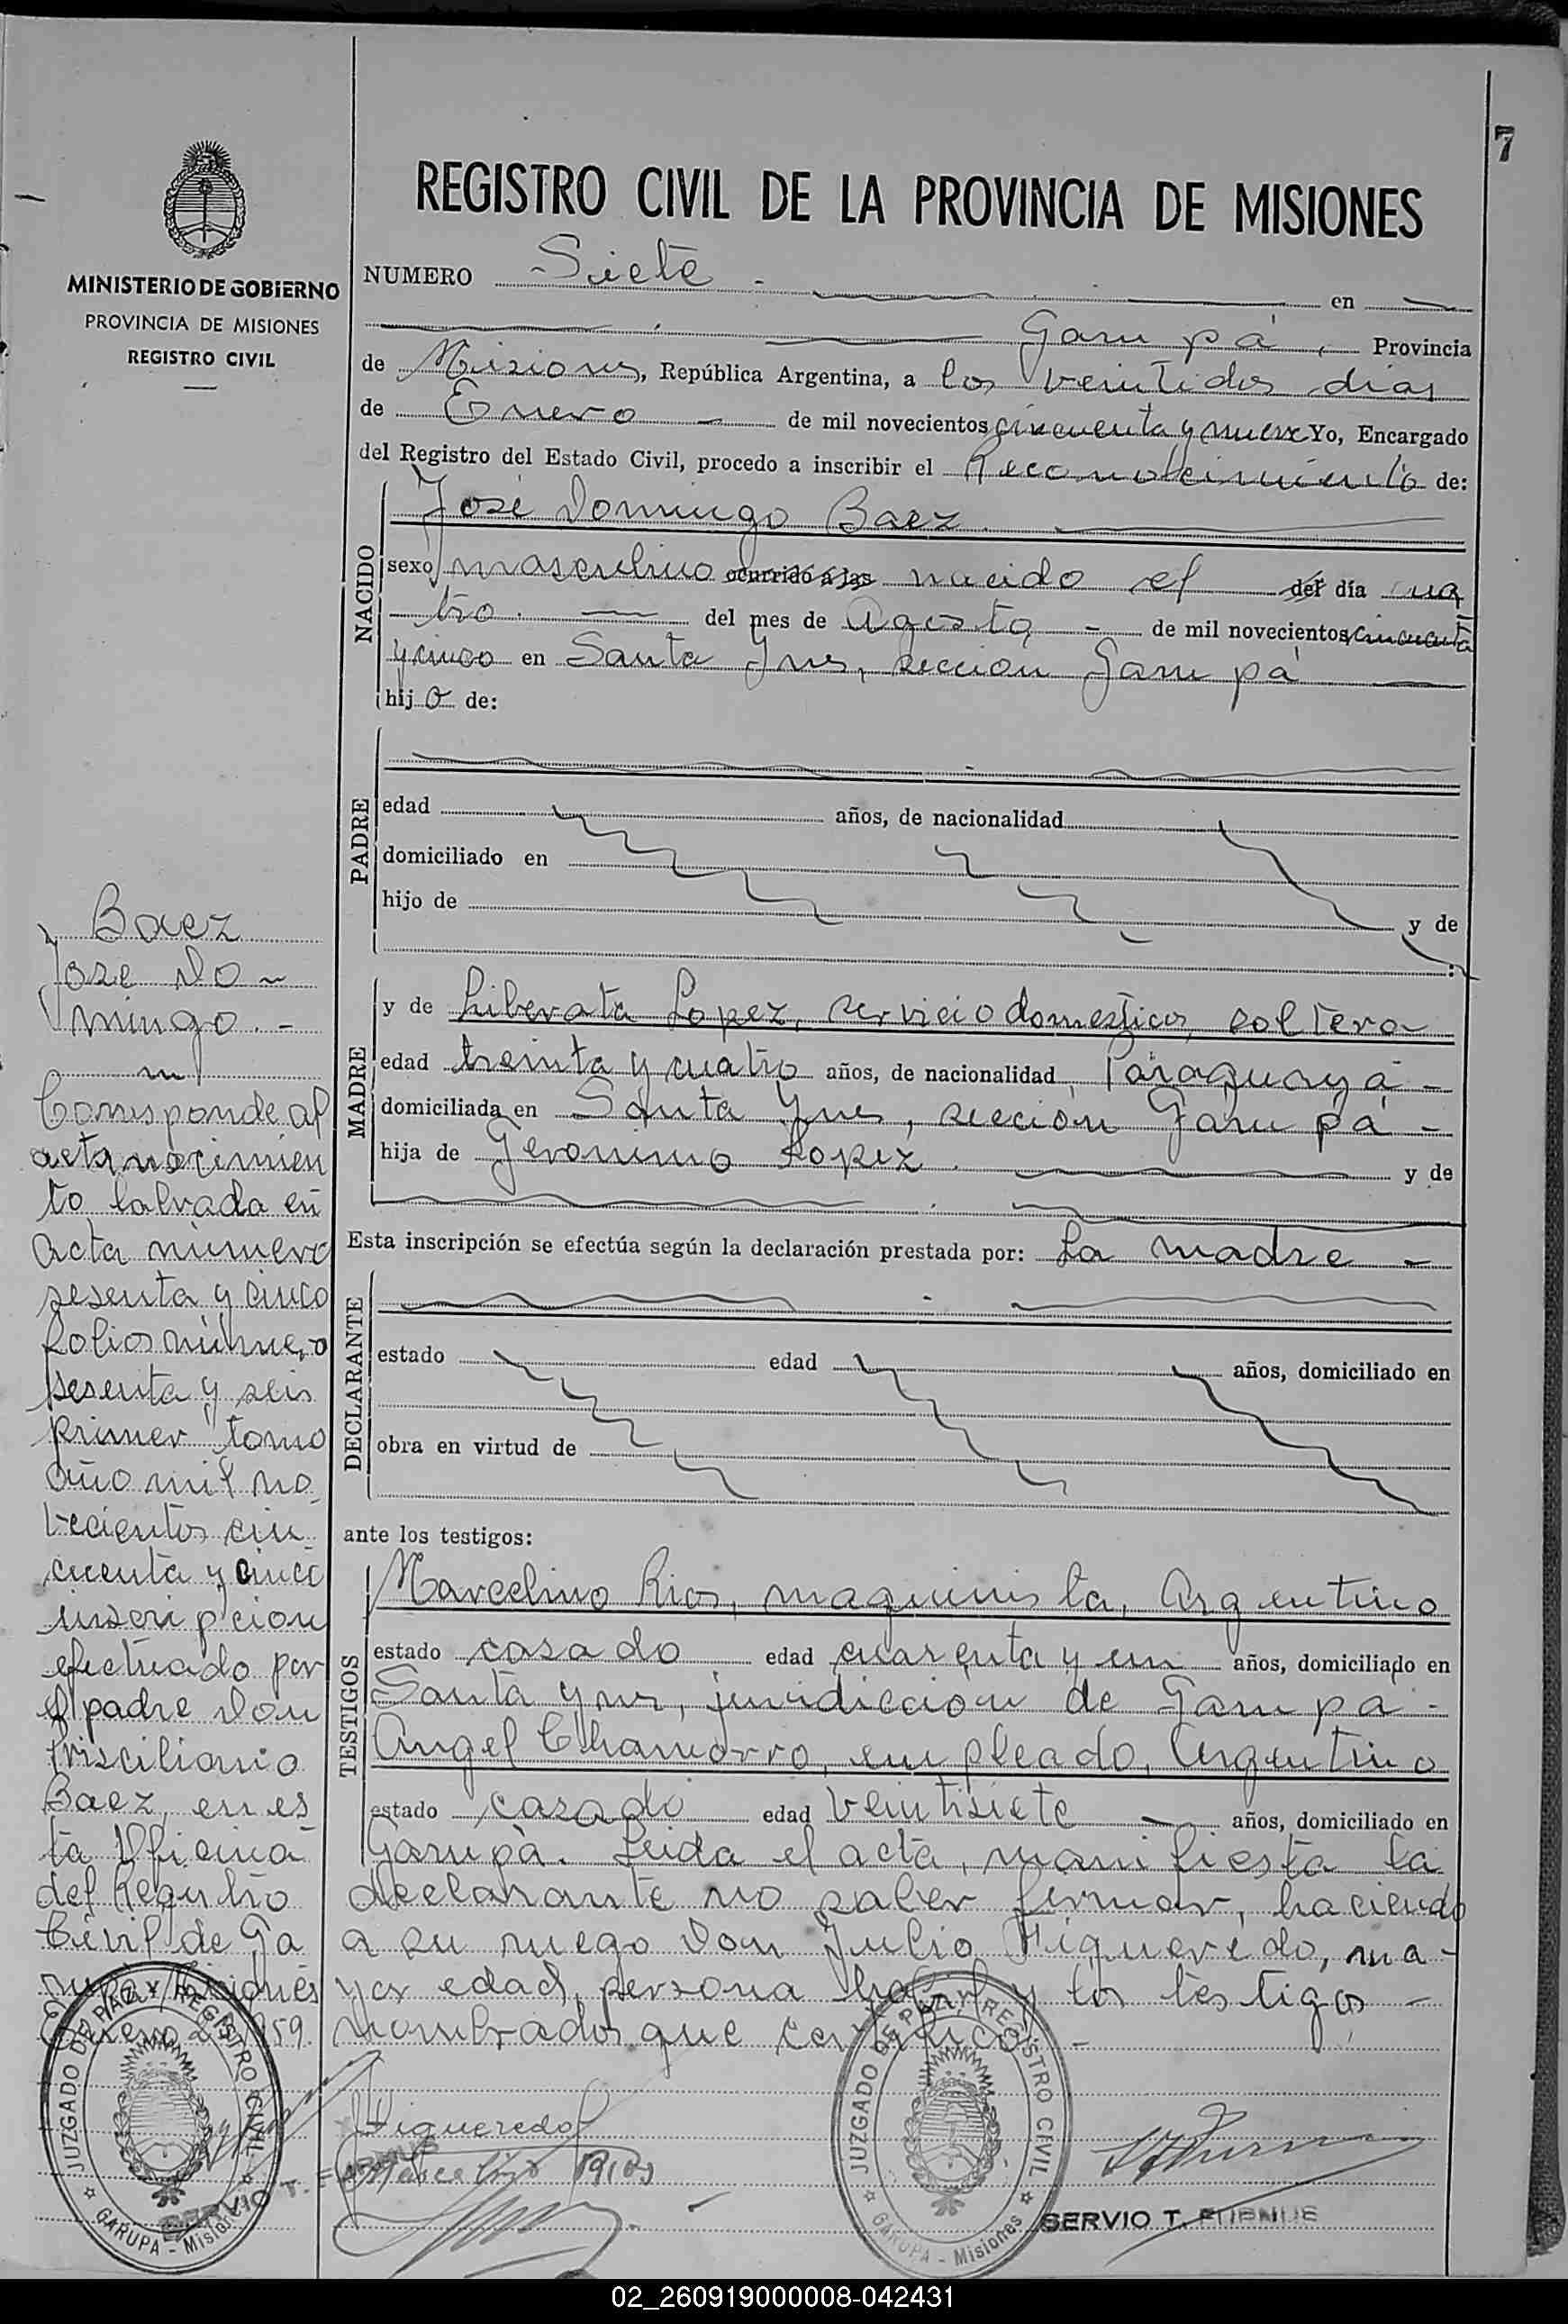 7
REGISTRO CIVIL DE LA PROVINCIA DE MISIONES
MINISTERIO DE GOBIERNO
PROVINCIA DE MISIONES
REGISTRO CIVIL
NUMERO Siete - en
Garupá, Provincia
de Misiones, República Argentina, a los veintidos dias
de Enero - de mil novecientos cincuenta y nueve Yo, Encargado
del Registro del Estado Civil, procedo a inscribir el Reconocimiento de:
NACIDO
José Domingo Baez.
sexo masculino ocurrido a las nacido el del día cua
tro. del mes de Agosto - de mil novecientos cincuenta
y cinco en Santa Ynes, sección Garupá
hijo de:
PADRE
edad años, de nacionalidad
domiciliado en
hijo de y de
:
MADRE
y de Liberata Lopez, servicio domestico, soltera
edad treinta y cuatro años, de nacionalidad Paraguaya -
domiciliada en Santa Ynes, sección Garupá -
hija de Geronimo Lopez. y de
Esta inscripción se efectúa según la declaración prestada por: La madre -
DECLARANTE
estado edad años, domiciliado en
obra en virtud de
ante los testigos:
TESTIGOS
Marcelino Rios, maquinista, Argentino
estado casado edad cuarenta y un años, domiciliado en
Santa Ynes, juridiccion de Garupá -
Angel Chamorro, empleado, Argentino
estado casado edad veintisiete años, domiciliado en
Garupá. Leida el acta, manifiesta la
declarante no saber firmar, haciendo
a su ruego Don Julio Figueredo, ma-
yor edad, persona habil y los testigos -
nombrados que certifico. -
Figueredo
Marcelino Rios
JUZGADO DE PAZ Y REGISTRO CIVIL
GARUPA - Misiones
SERVIO T.
Baez
Jose Do-
mingo. -
Corresponde al
acta nacimien
to labrada en
acta número
sesenta y cinco
folios número
sesenta y seis
primer tomo
año mil no
vecientos cin
cuenta y cinco
inscripcion
efectuado por
el padre Don
Prisciliano
Baez, en es
ta Oficina
del Registro
Civil de Ga
rupá, Misiones
Enero 22/1959.
JUZGADO DE PAZ Y REGISTRO CIVIL
GARUPA - Misiones
02_260919000008-042431